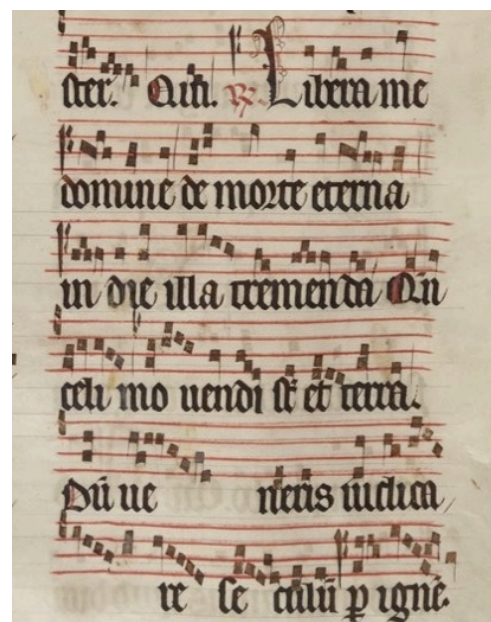 ster. Qm̄. ℟. Libera me
domine de morte eterna
in die illa tremenda Qn̄
celi mo uendi st̄ et terra.
Dū ue neris iudica
re se culū p ignē.